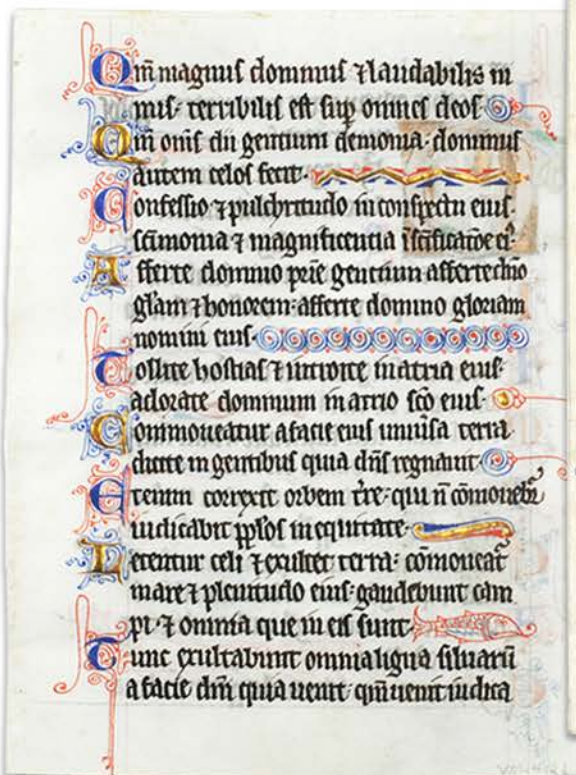 Qm̄ magnus dominus ⁊ laudabilis ni
mis: terribilis est sup̄ omnes deos.
Qm̄ om̄s dii gentium demonia: dominus
autem celos fecit.
Confessio ⁊ pulchritudo in conspectu eius.
sc̄imonia ⁊ magnificentia ī sc̄ificatōe ei᷒
Afferte domino pr̄ie gentium afferte dn̄o
gl̄am ⁊ honorem: afferte domino gloriam
nomini eius.
Tollite hostias ⁊ introite in atria eius.
adorate dominum in atrio sc̄o eius.
Commoueatur a facie eius uniu̾sa terra.
dicite in gentibus quia dn̄s regnauit.
Etenim correxit orbem t̄re: qui n̄ cōmouebit̄
iudicabit pp̄los in equitate.
Letentur celi ⁊ exultet terra: cōmoueat̄
mare ⁊ plenitudo eius: gaudebunt cam
pi: ⁊ omnia que in eis sunt.
Tunc exultabunt omnia ligna siluarū
a facie dn̄i quia uenit: qm̄ uenit iudica